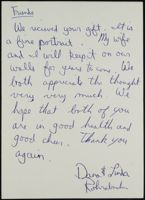 Friends
We received your gift. It is
a fine portrait. My wife
and I will keep it on our
walls for years to come. We
both appreciate the thought
very very much. We
hope that both of you
are in good health and
good cheer. Thank you
again.
Dave & Linda